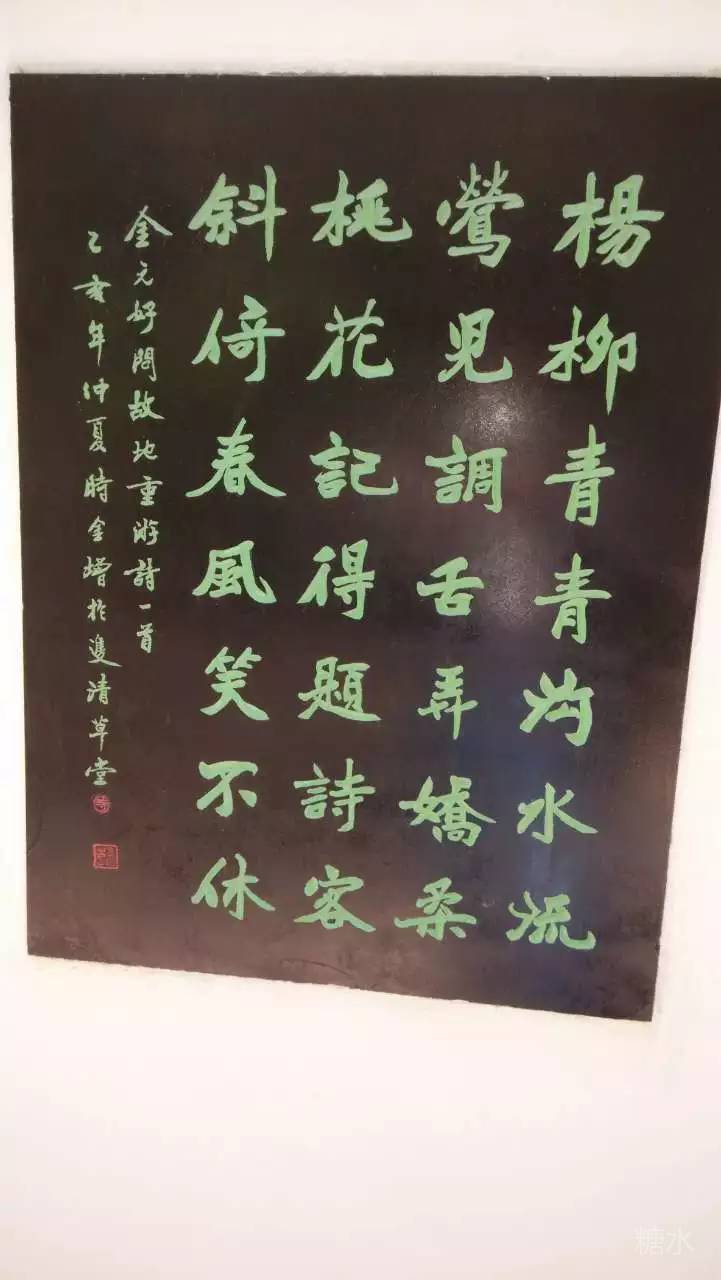 楊柳青青沟水流
鶯兒調舌弄嬌柔
桃花記得題詩客
斜倚春風笑不休
金元好問故地重游詩一首
乙亥年仲夏時金增於雙清草堂
糖水